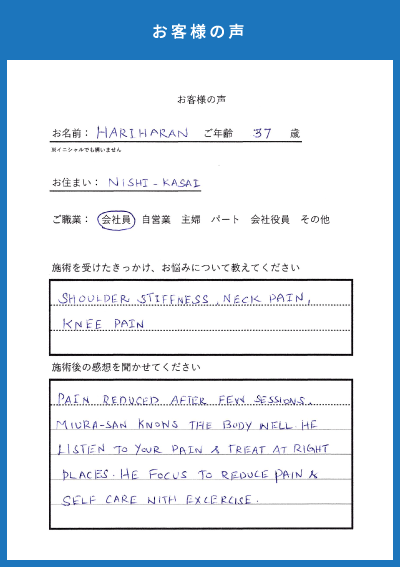 お客様の声
お客様の声
お名前： HARIHARAN ご年齢 37 歳
※イニシャルでも構いません
お住まい： NISHI - KASAI
ご職業： 会社員 自営業 主婦 パート 会社役員 その他
施術を受けたきっかけ、お悩みについて教えてください
SHOULDER STIFFNESS, NECK PAIN,
KNEE PAIN
施術後の感想を聞かせてください
PAIN REDUCED AFTER FEW SESSIONS.
MIURA-SAN KNOWS THE BODY WELL. HE
LISTEN TO YOUR PAIN & TREAT AT RIGHT
PLACES. HE FOCUS TO REDUCE PAIN &
SELF CARE WITH EXCERCISE.